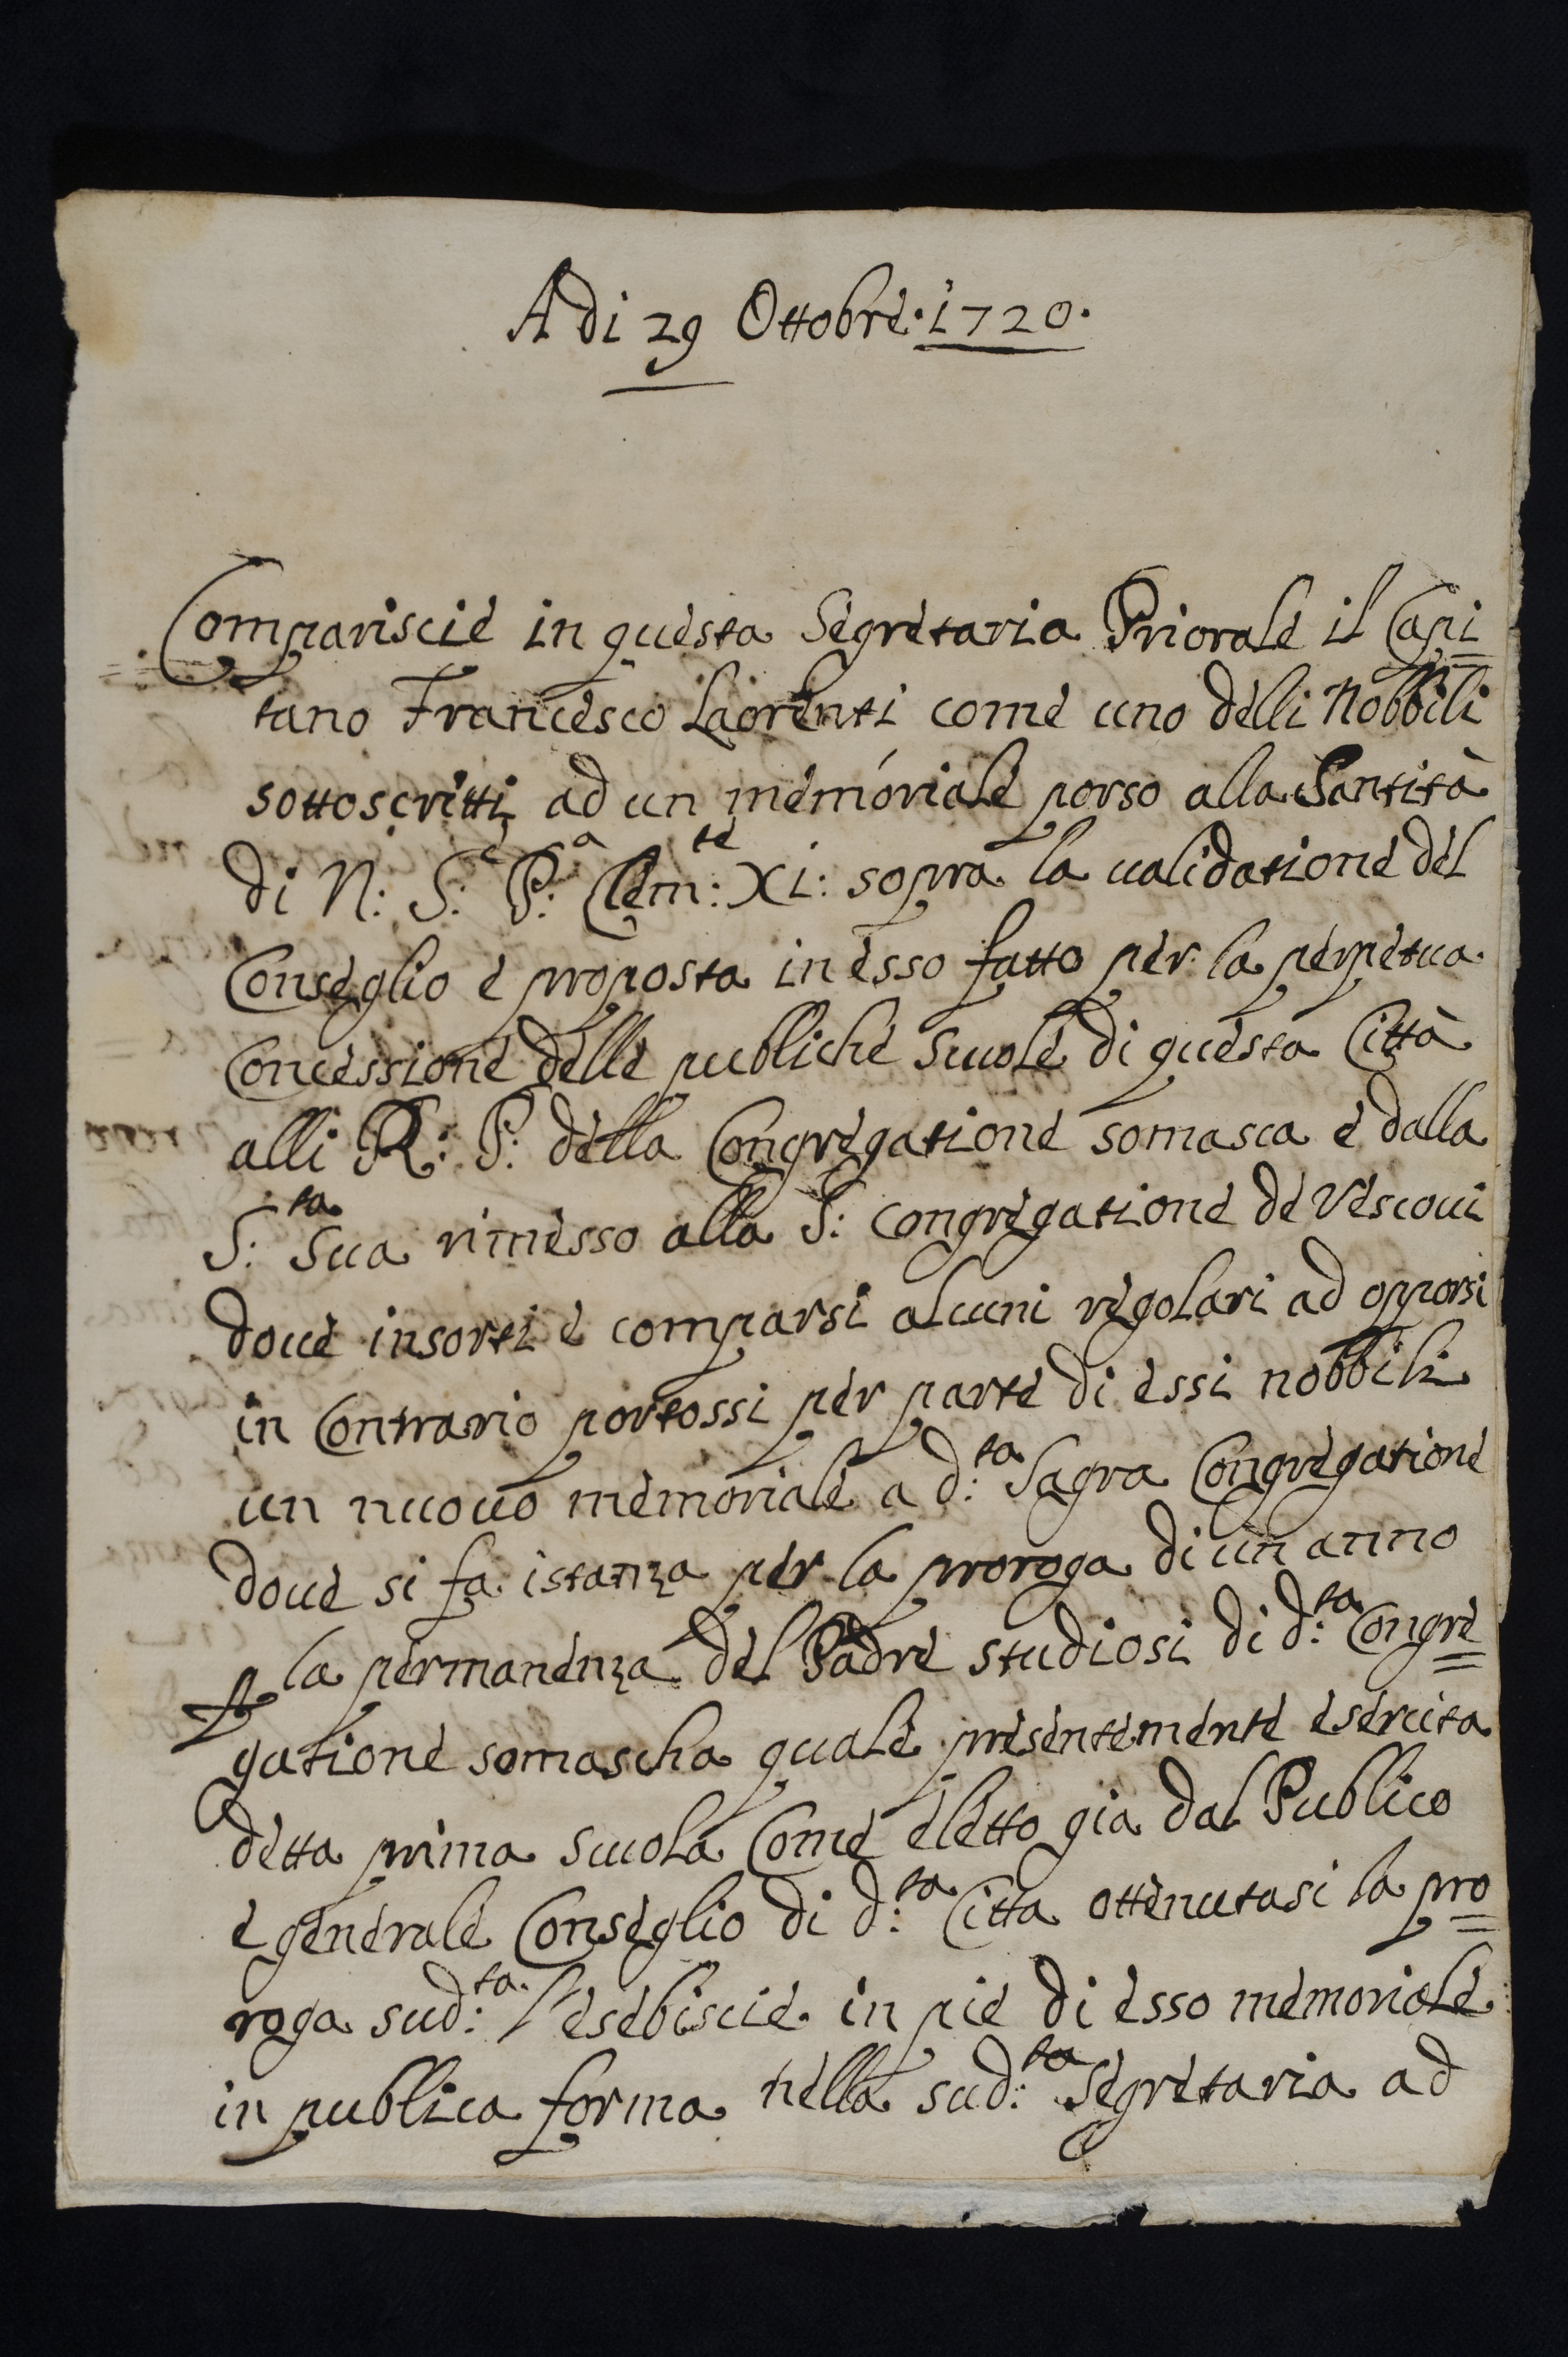 A di 29 Ottobre. 1720.
Compariscie in questa Segretaria Priorale il Capi=
tano Francesco Laorenti come uno delli Nobbili
sottoscritti ad un memoriale porso alla Santità
di N: S:e P:a Clem:te XI: sopra la ualidatione del
Conseglio e proposta in esso fatto per la perpetua
Concessione delle publiche scuole di questa Città
alli R: P: della Congregatione somasca e dalla
S:ta Sua rimesso alla S: Congregatione de Vescoui
doue insorti e comparsi alcuni regolari ad opporsi
in Contrario portossi per parte di essi nobbili
un nuouo memoriale a d:ta Sagra Congregatione
doue si fa istanza per la proroga di un anno
p la permanenza del Padre studiosi di d:ta Congre=
gatione somascha quale presentemente esercita
detta prima scuola Come eletto gia dal Publico
e generale Conseglio di d:ta Citta ottenutasi la pro=
roga sud:ta l'esebiscie in pie di esso memoriale
in publica forma nella sud:ta Segretaria ad